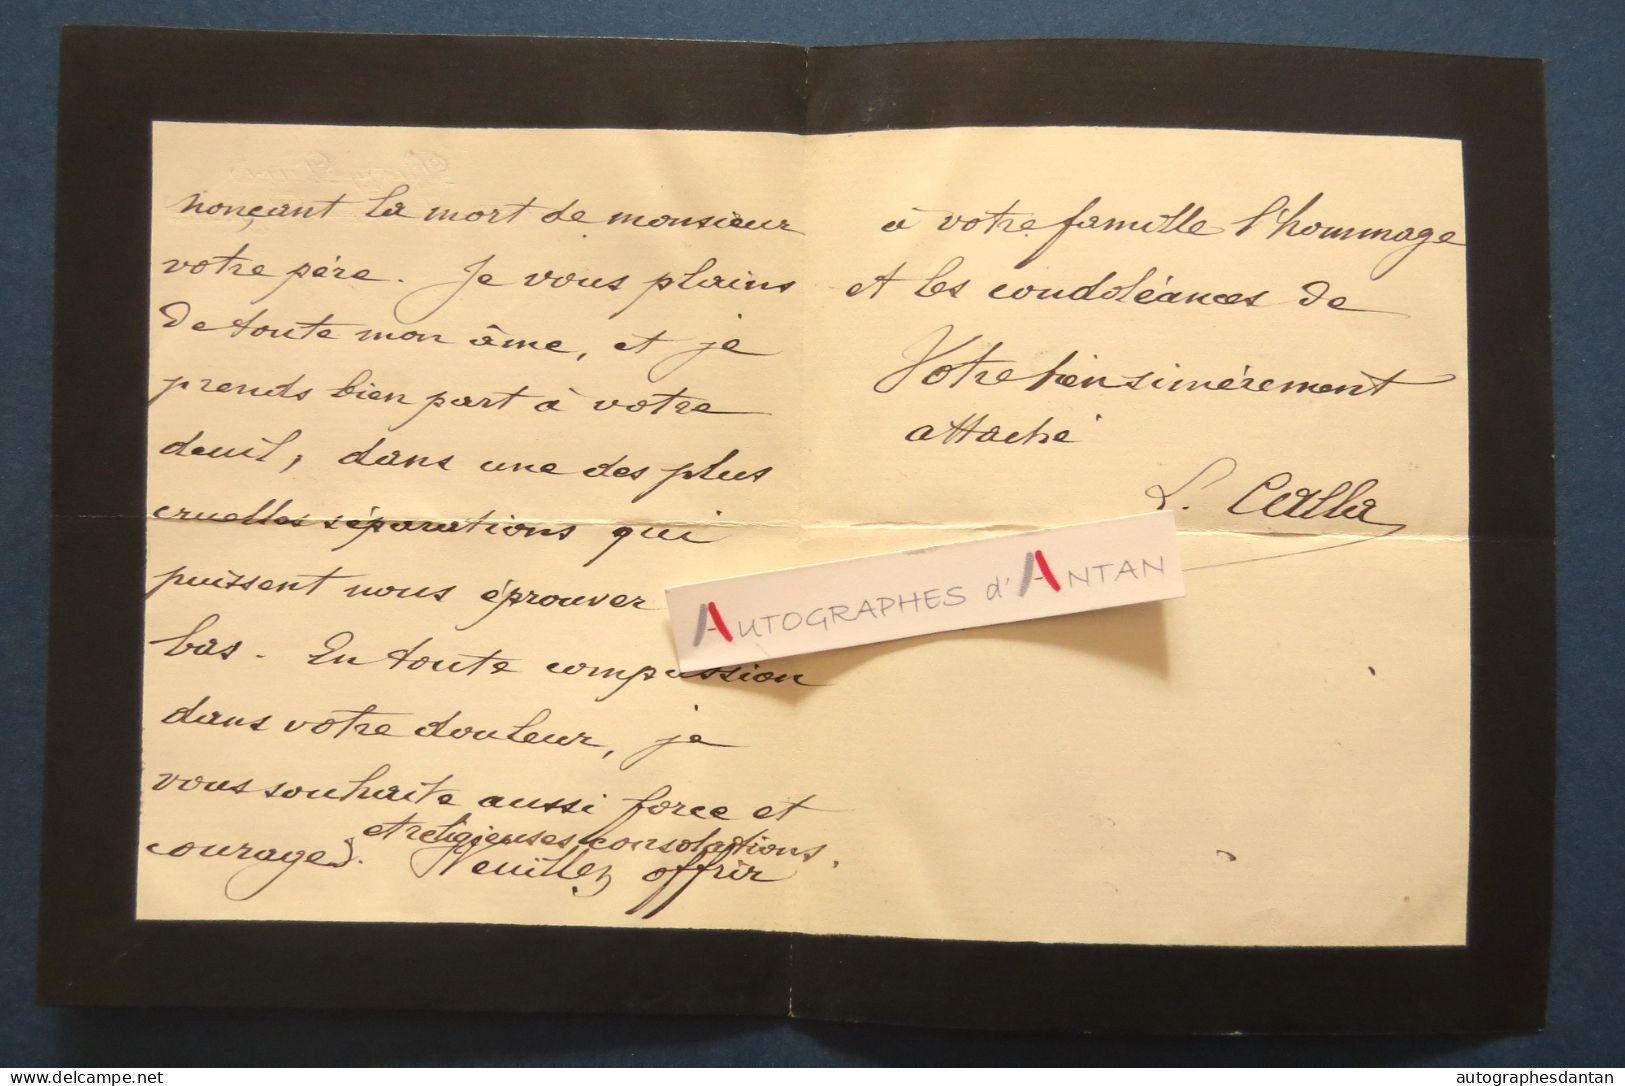 nonçant la mort de monsieur
votre père. Je vous plains
de toute mon âme, et je
prends bien part à votre
deuil, dans une des plus
cruelles séparations qui
puissent nous éprouver
bas. En toute compassion
dans votre douleur, je
vous souhaite aussi force et
et religieuses consolations.
courage. Veuillez offrir
à votre famille l'hommage
et les condoléances de
Votre bien sincèrement
attaché
L. Calla
AUTOGRAPHES d'ANTAN
www.delcampe.net
autographesdantan